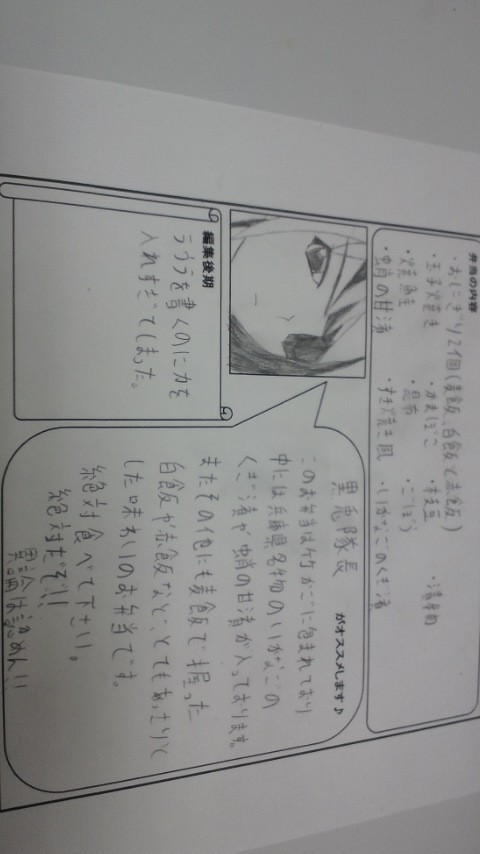 弁当の内容
・おにぎり2個(麦飯、白飯と赤飯)
・玉子焼き ・かまぼこ ・枝豆 ・漬物
・焼魚 ・昆布 ・ごぼう
・蛸の甘煮 ・すき焼き風 ・いかなごのくぎ煮
黒兎隊長 がオススメします♪
このお弁当は竹かごに包まれており
中には兵庫県名物のいかなごの
くぎ煮や蛸の甘煮が入っております。
またその他にも麦飯で握った
白飯や赤飯など、とてもあっさりと
した味わいのお弁当です。
絶対食べて下さい。
絶対だぞ!!
異論は認めん!!
編集後期
ラウラを書くのに力を
入れすぎてしまった。